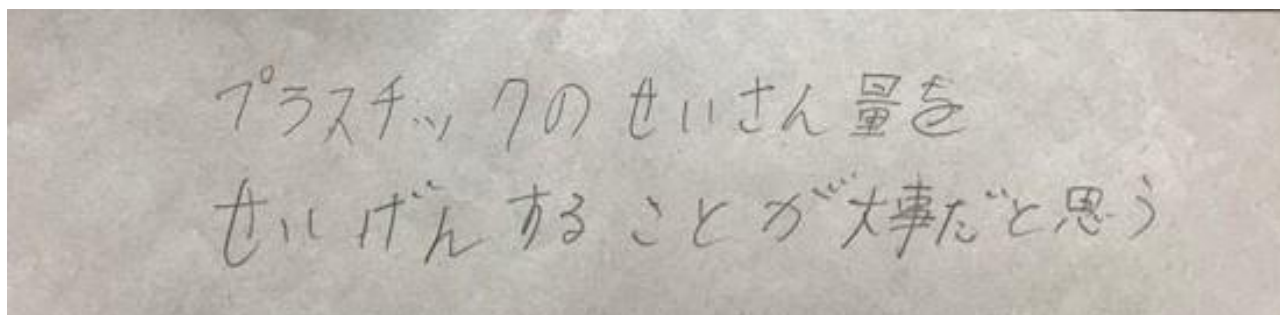 プラスチックのせいさん量を
せいげんすることが大事だと思う